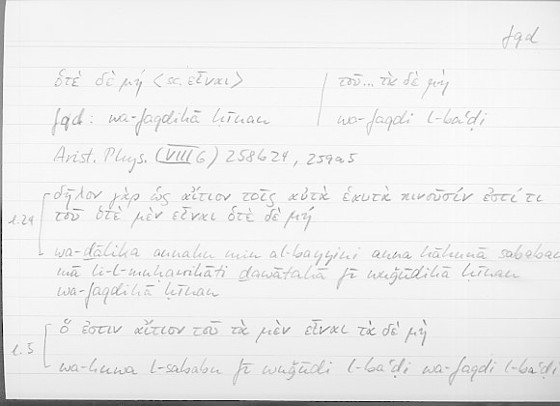 fqd
ὁτὲ δὲ μή <sc. εἶναι> | τοῦ... τὰ δὲ μή
fqd: wa-faqdihā ḥīnan | wa-faqdi l-baʿḍi
Arist. Phys. (VIII 6) 258b24, 259a5
l.24 δῆλον γὰρ ὡς αἴτιον τοῖς αὐτὰ ἑαυτὰ κινοῦσίν ἐστί τι
τοῦ ὁτὲ μὲν εἶναι ὁτὲ δὲ μή
wa-ḏālika annahu min al-bayyini anna hāhunā sababan
mā li-l-muḥarrikāti ḏawātahā fī wuǧūdihā ḥīnan
wa-faqdihā ḥīnan
l.5 ὅ ἐστιν αἴτιον τοῦ τὰ μὲν εἶναι τὰ δὲ μὴ
wa-huwa l-sababu fī wuǧūdi l-baʿḍi wa-faqdi l-baʿḍi